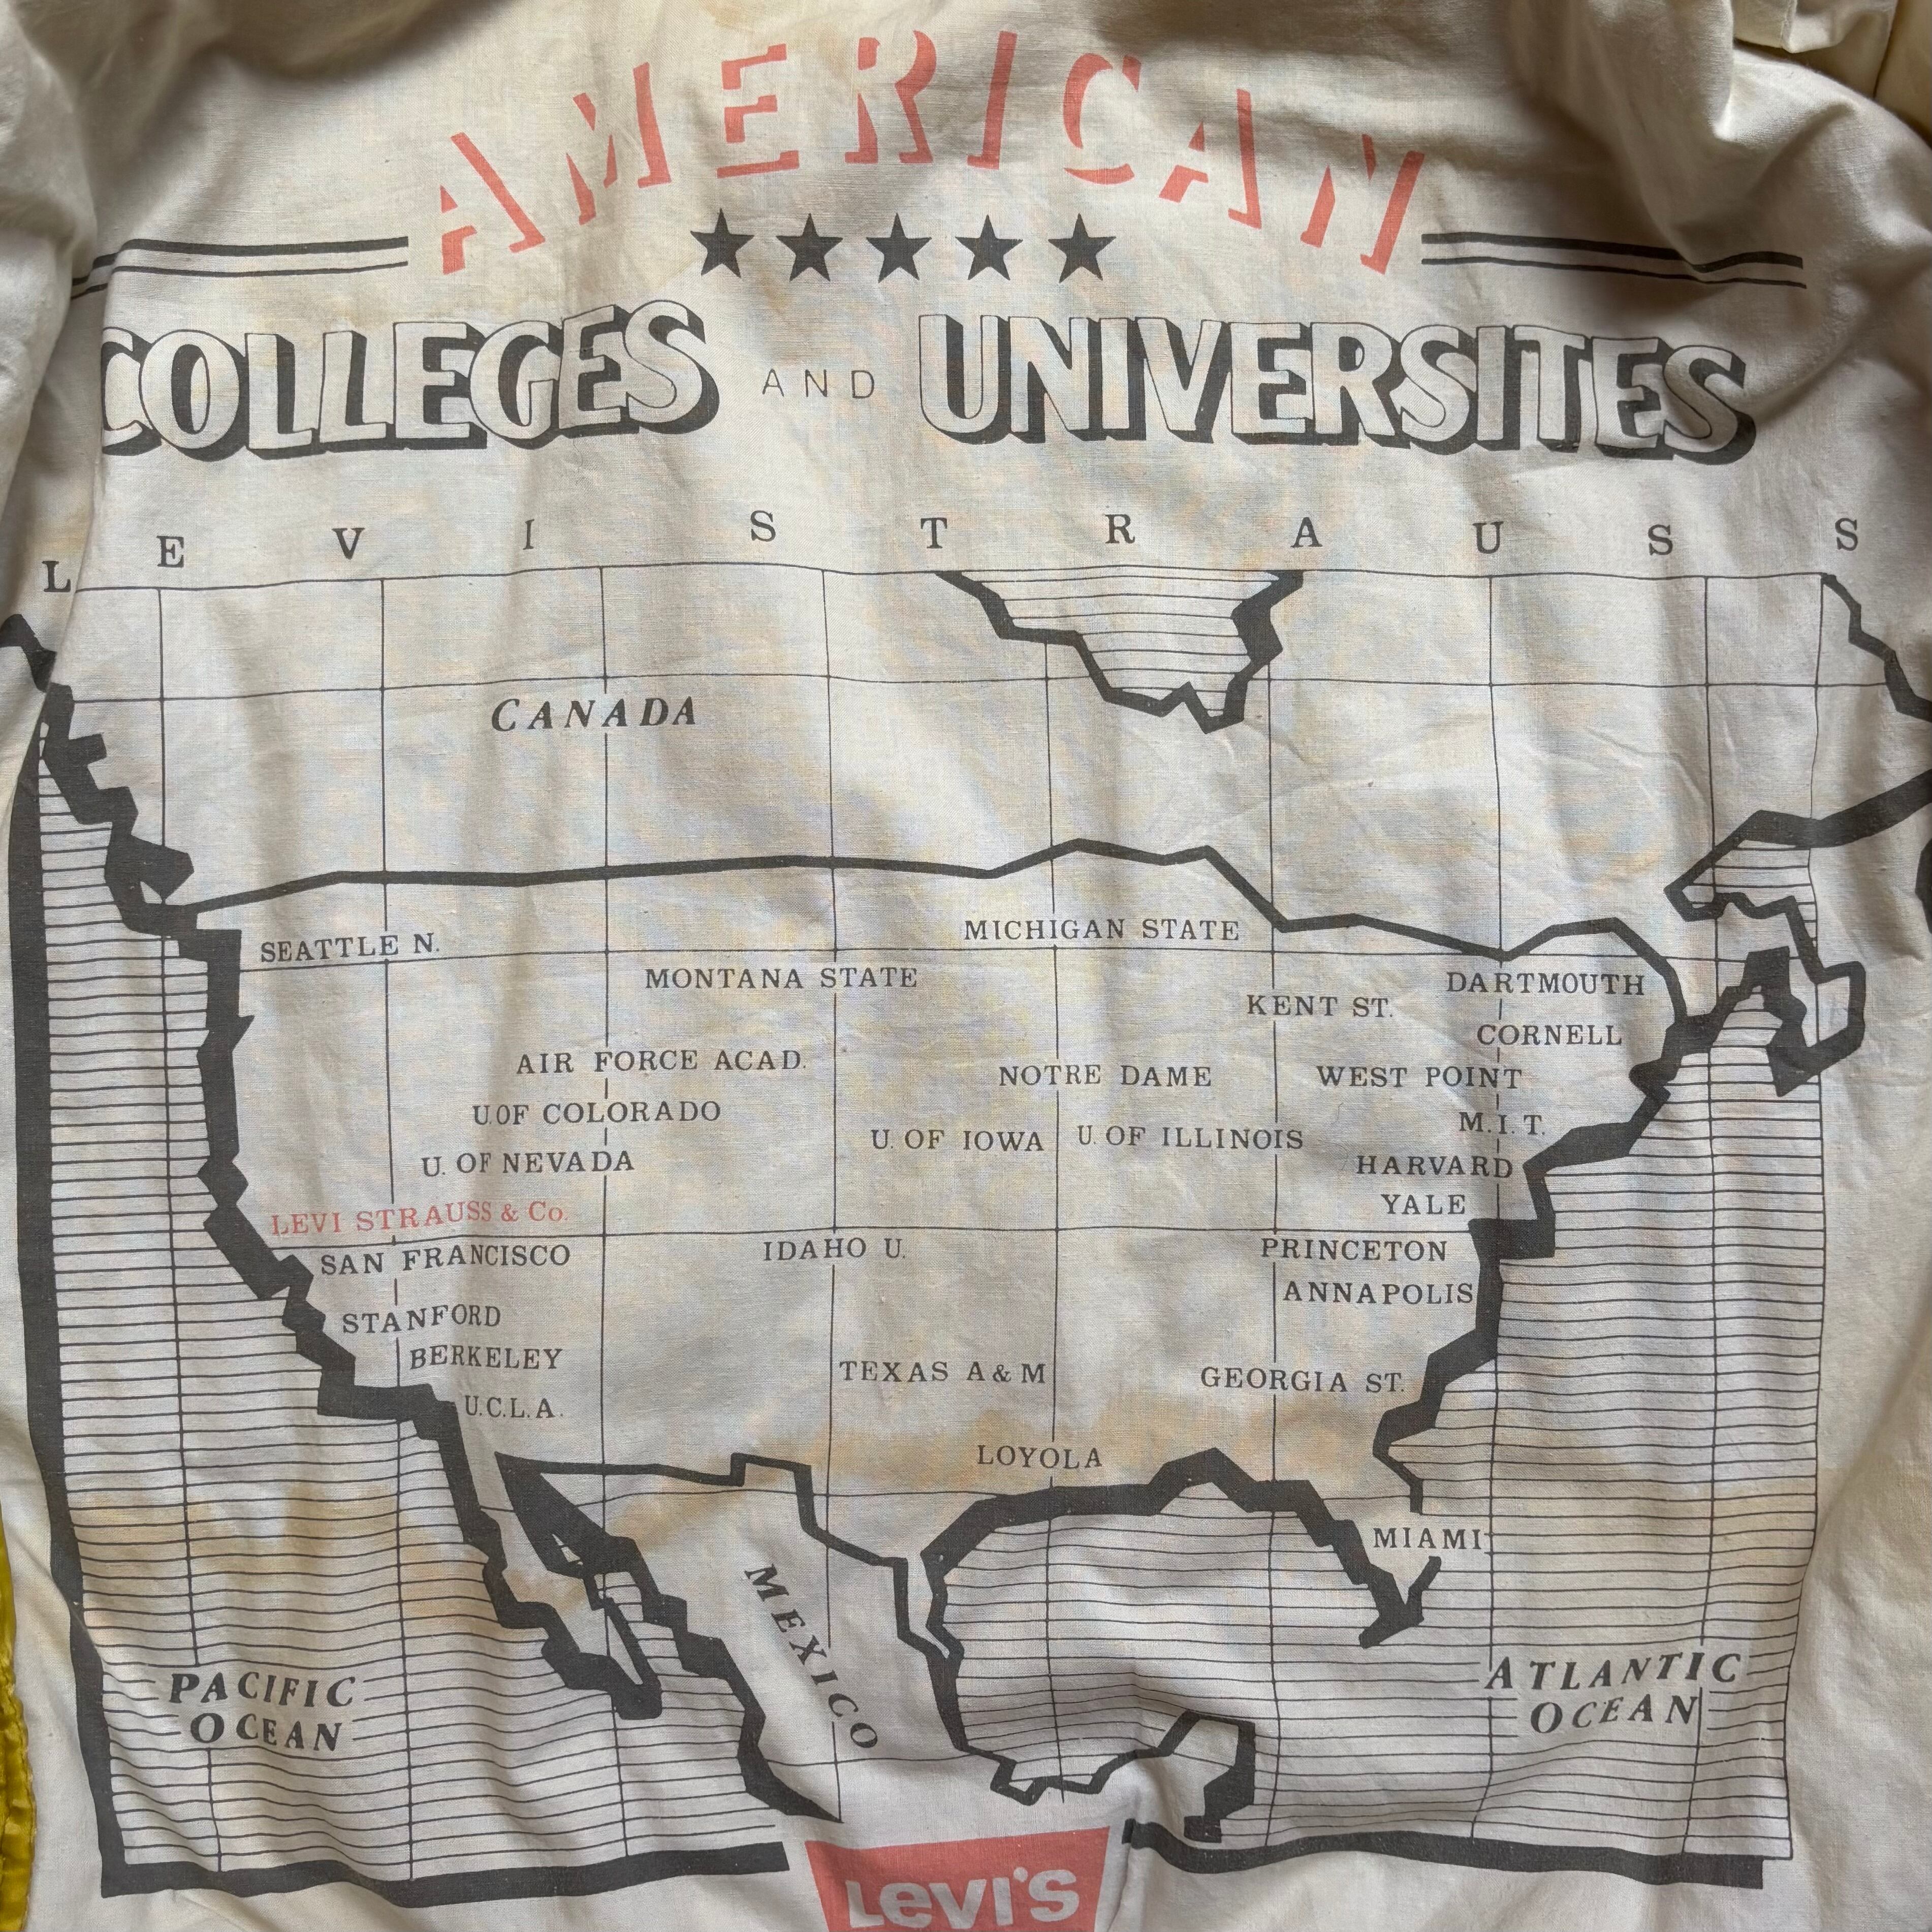 AMERICAN
COLLEGES AND UNIVERSITES
LEVI STRAUSS
CANADA
MICHIGAN STATE
SEATTLE N.
MONTANA STATE
DARTMOUTH
KENT ST.
CORNELL
AIR FORCE ACAD.
NOTRE DAME
WEST POINT
U.OF COLORADO
M.I.T.
U. OF IOWA
U. OF ILLINOIS
U. OF NEVADA
HARVARD
YALE
LEVI STRAUSS & Co.
SAN FRANCISCO
IDAHO U.
PRINCETON
ANNAPOLIS
STANFORD
BERKELEY
TEXAS A&M
GEORGIA ST.
U.C.L.A.
LOYOLA
MIAMI
MEXICO
PACIFIC
OCEAN
ATLANTIC
OCEAN
Levi's